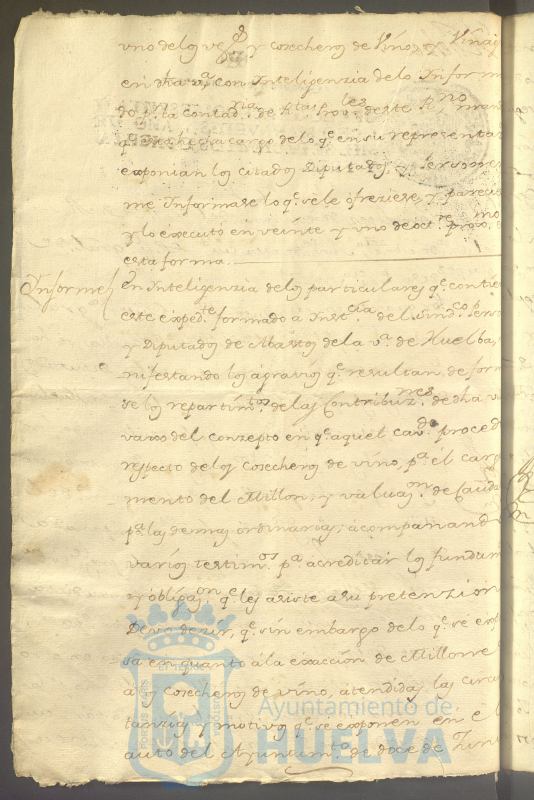 uno de los vez.s y cosecheros de Vino, y Vinag
en dha v.a, con Inteligenzia de lo Inform
do p.r la Contad.ria de R.tas Prov.les de este R.no, mand
q.e hecha cargo de lo q.e en su representa
exponian los citados Diputados, y Persone
me Informase lo q.e se le ofreziese, y pareci
y lo executó en veinte y uno de oct.re prox.mo
esta forma.
Informe
En Inteligenzia de los particulares q.e contie
este exped.te formado á Inst.cia del Sind.co Pers
y Diputados de Abastos de la v.a de Huelba,
nifestando los agravios q.e resultan de form
se los repartim.tos de las Contribuz.nes de dha v
varos del conzepto en q.e aquel cav.do proced
respecto de los Cosecheros de vino, p.a el carg
mento del Millon, y valuaz.on de Cauda
p.a las demas ordinarias; acompañand
varios testim.os p.a acreditar los fundam
y obligaz.on q.e les asiste a su pretenzion
Devo dezir, q.e sin embargo de lo q.e se exp
sa en quanto á la exaccion de Millone
a los Cosecheros de vino, atendidas las circu
tanzias y motivos q.e se exponen en el
auto del Ayuntam.to de doce de Juni
Ayuntamiento de
HUELVA
PORTUS MARIS
ET TERRE
CUSTODIA